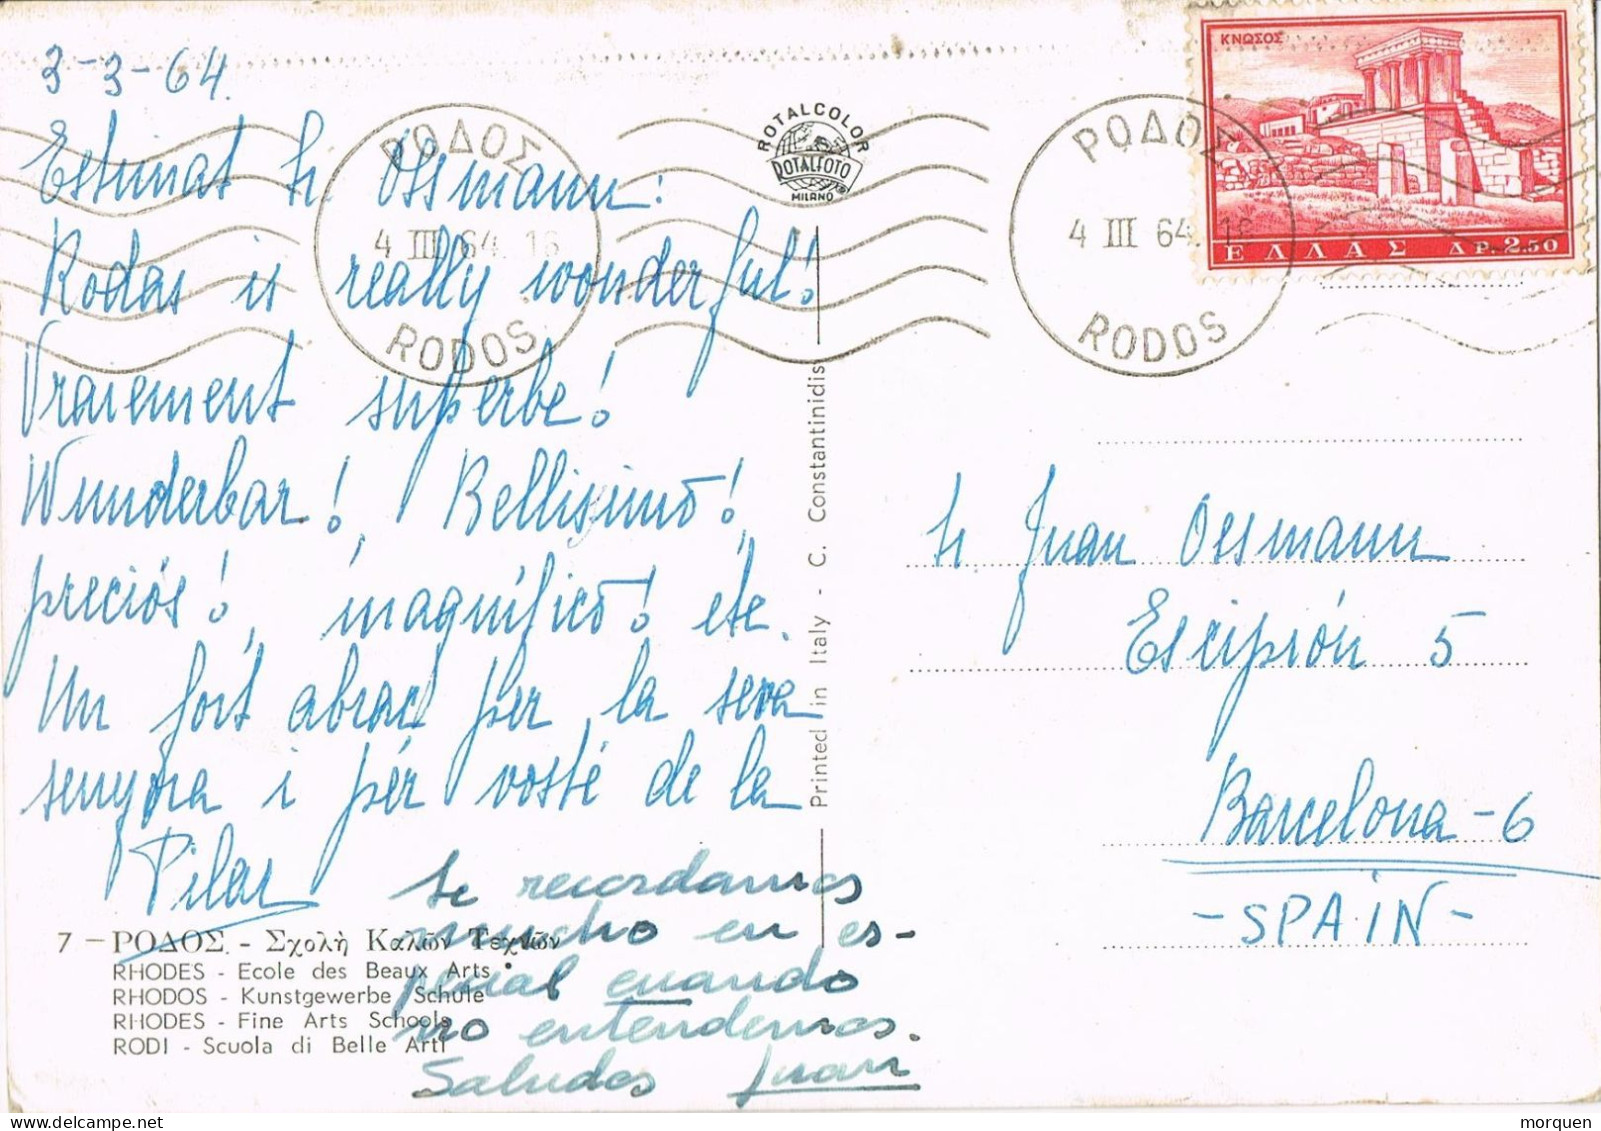 3-3-64.
Estimat Sr. Ossmann:
Rodas is really wonderful!
Vraiement superbe!
Wunderbar! Bellisimo!
preciós! magnífico! etc.
Un fort abraç per la seva
senyora i per vosté de la
Pilar
Le recordamos
mucho en es-
pecial cuando
no entendemos.
Saludos Juan
7 - ΡΟΔΟΣ. - Σχολὴ Καλῶν Τεχνῶν
RHODES - Ecole des Beaux Arts
RHODOS - Kunstgewerbe Schule
RHODES - Fine Arts Schools
RODI - Scuola di Belle Arti
ΡΟΔΟΣ
4 III 64. 16
RODOS
ROTALCOLOR
ROTALFOTO
MILANO
Printed in Italy - C. Constantinidis
ΡΟΔΟΣ
4 III 64. 16
RODOS
ΚΝΩΣΟΣ
ΕΛΛΑΣ ΔΡ. 2.50
Sr Juan Ossmann
Escipión 5
Barcelona-6
-SPAiN-
morquen